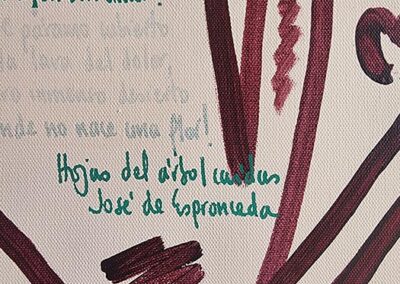 e páramo cubierto
la lava del dolor
ro inmenso desierto
nde no nace una flor!
Hojas del árbol caídas
José de Espronceda